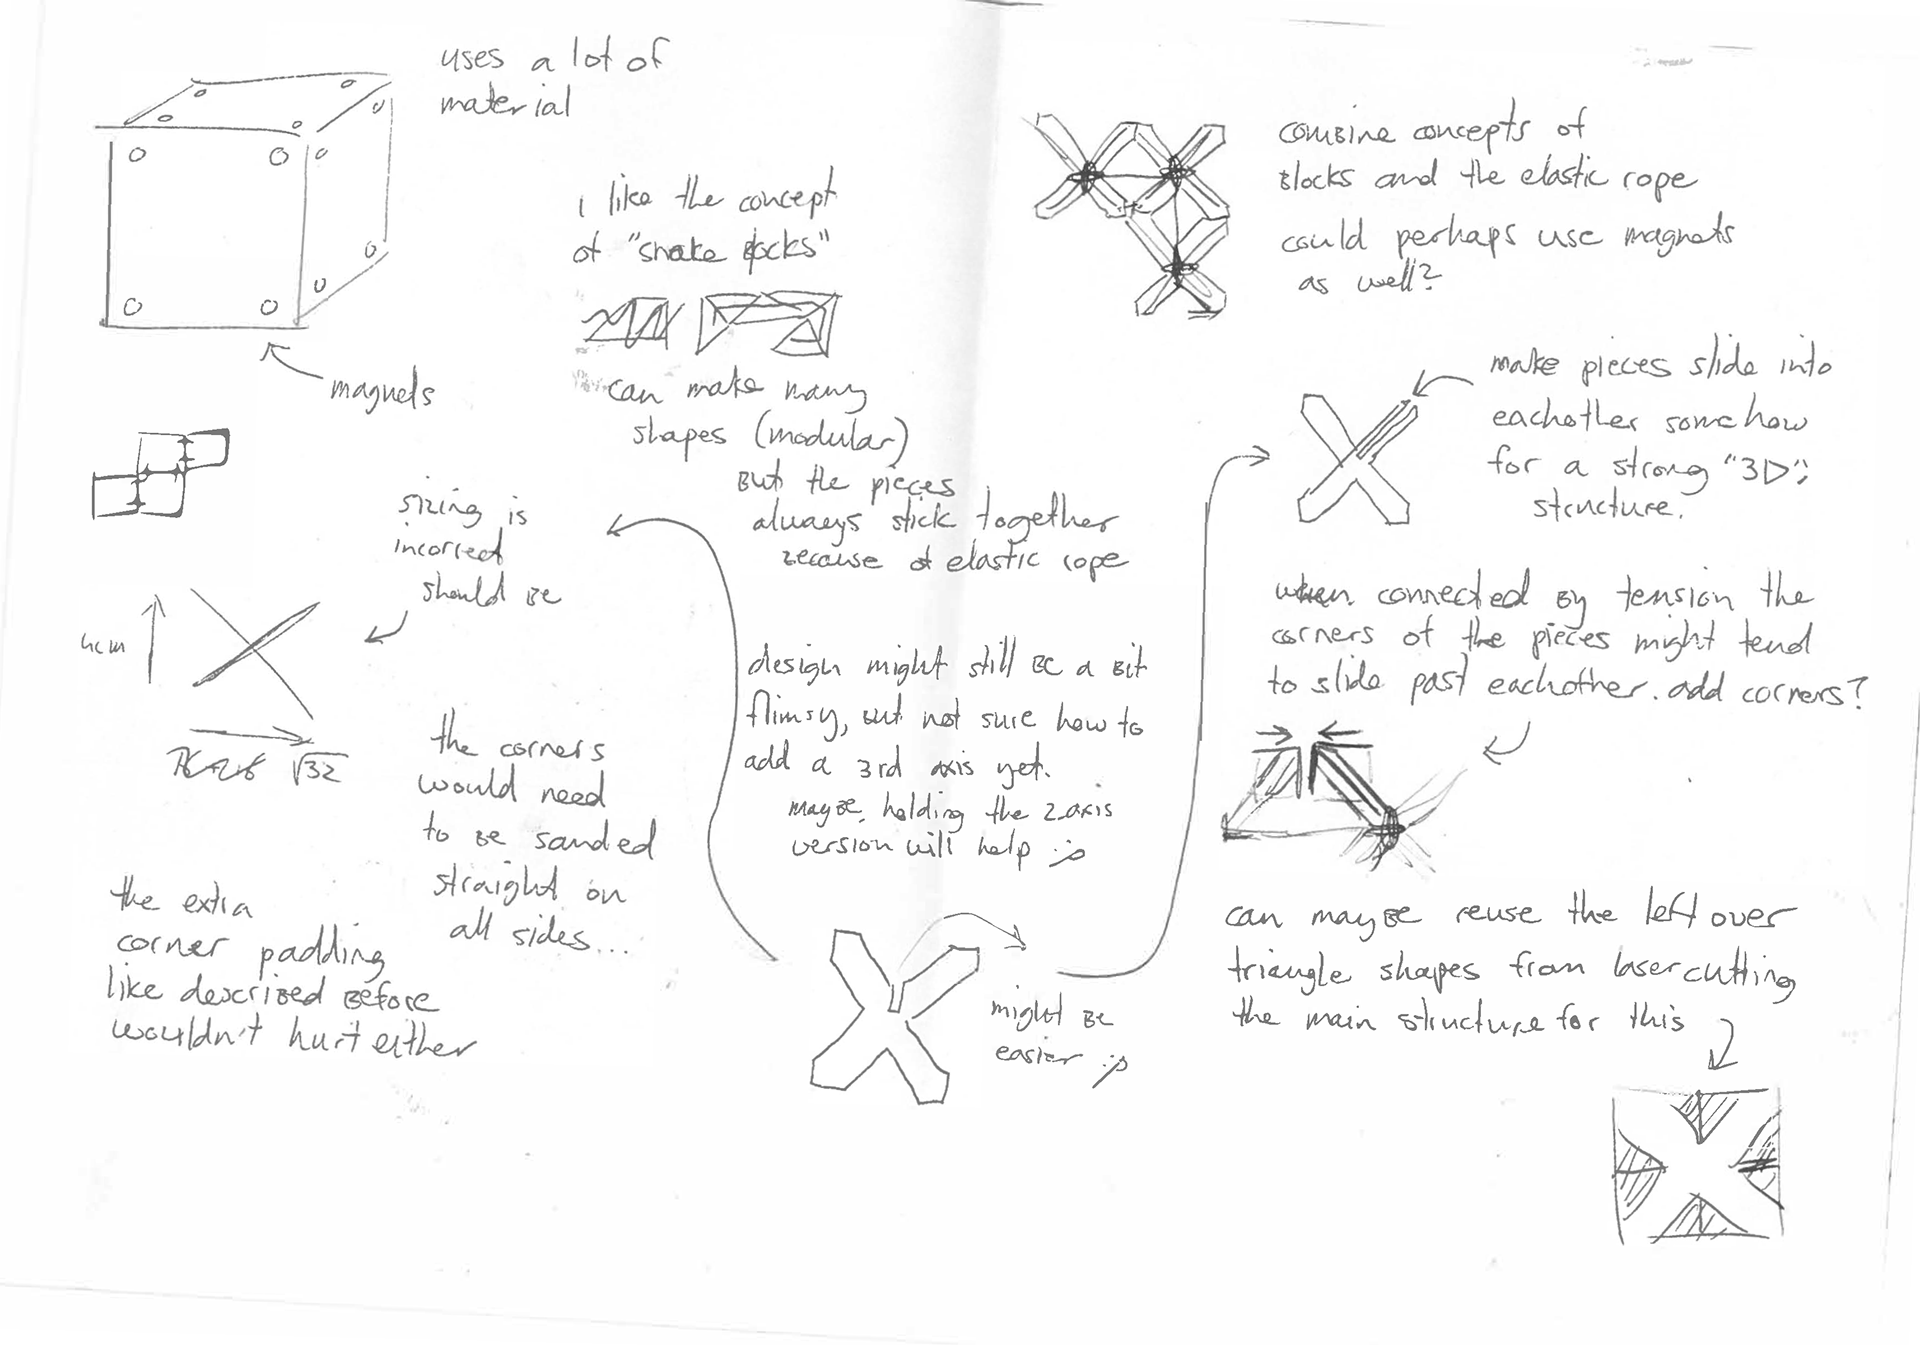 uses a lot of
material
magnets
i like the concept
of "snake blocks"
can make many
shapes (modular)
But the pieces
always stick together
because of elastic rope
sizing is
incorrect
should be
4cm
√32
the corners
would need
to be sanded
straight on
all sides...
the extra
corner padding
like described before
wouldn't hurt either
design might still be a bit
flimsy, but not sure how to
add a 3rd axis yet.
maybe holding the 2 axis
version will help :p
might be
easier :p
combine concepts of
blocks and the elastic rope
could perhaps use magnets
as well?
make pieces slide into
eachother somehow
for a strong "3D";
structure.
when connected by tension the
corners of the pieces might tend
to slide past eachother. add corners?
can maybe reuse the left over
triangle shapes from lasercutting
the main structure for this